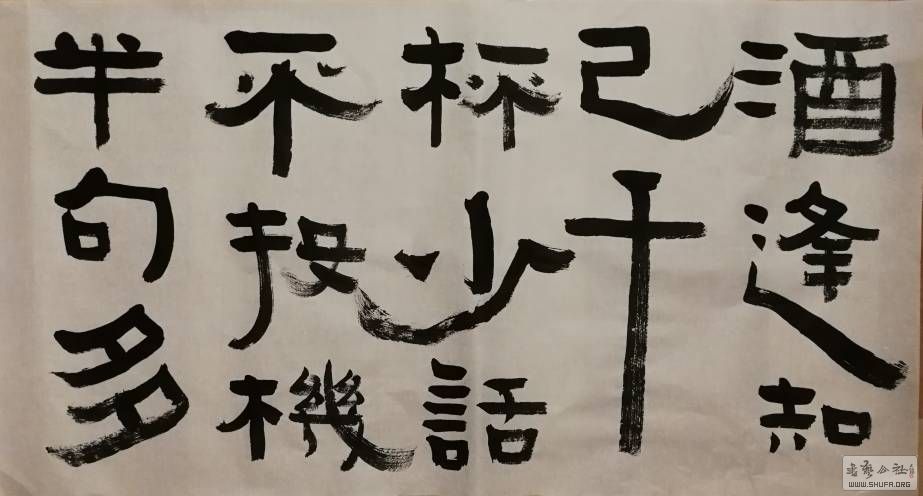 酒逢知
己千
杯少話
不投機
半句多
WWW.SHUFA.ORG